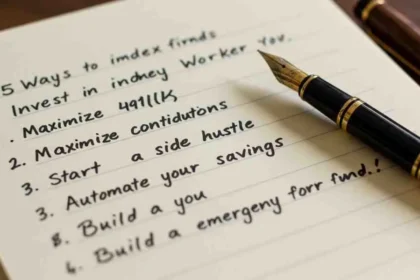 5 Ways to imdex firnds
Invest in indney Worker You.
. Maximize 491llK
2. Maximize contidutons
3. Start a side hustle
3. Automate your savings
8. Build a you
6. Build a emergeny forr fund.!